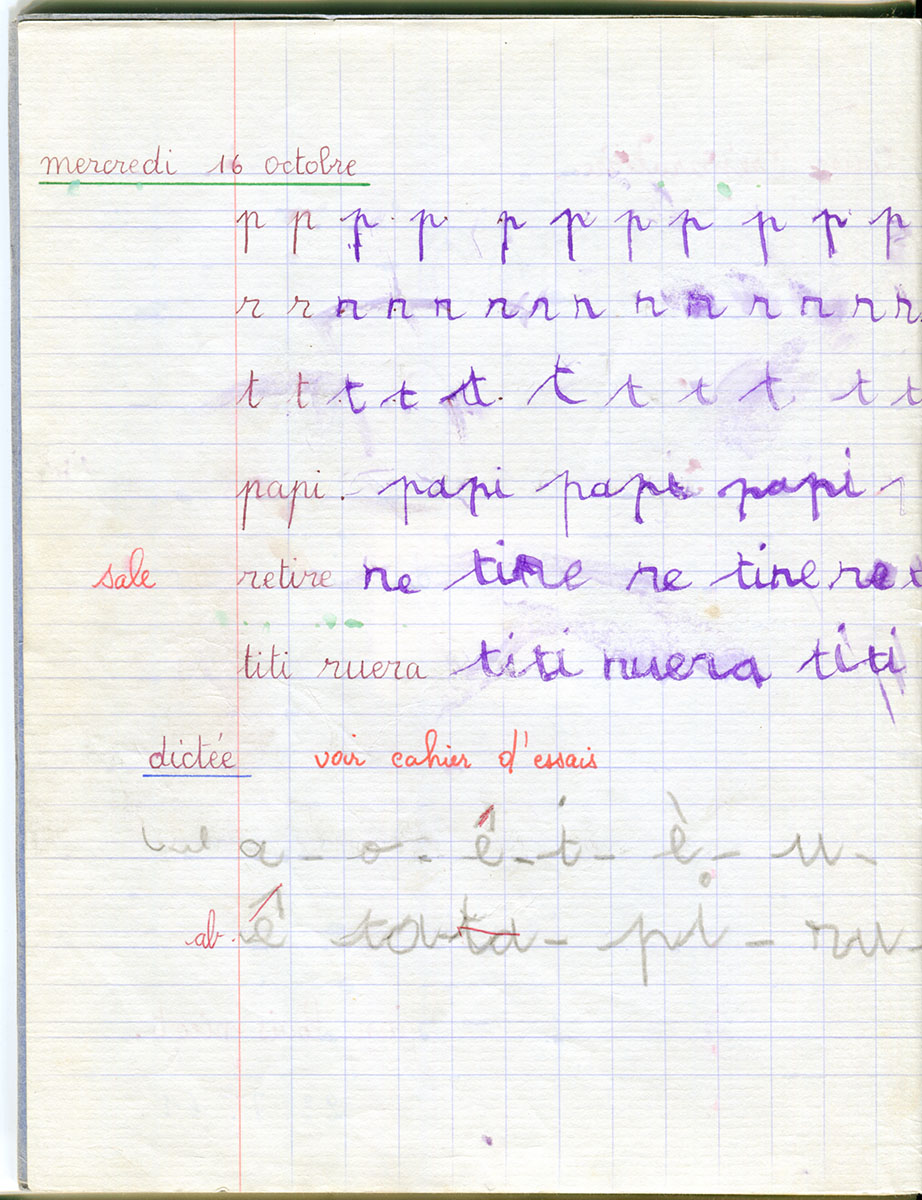 mercredi 16 octobre
p p p p p p p p p p p
r r r r r r r r r r r r r r
t t t t t t t t t t t
papi. papi papi papi
sale retire re tire re tire re
titi ruera titi ruera titi
dictée voir cahier d'essais
a - o - ê - i - è - u -
ab. ê tata - pi - ru